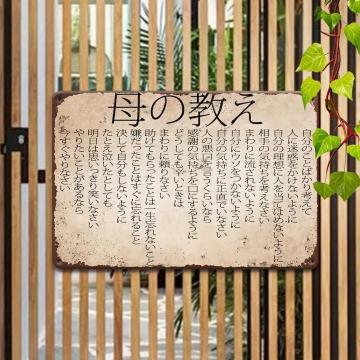 母の教え
自分のことばかり考えて
人に迷惑をかけないように
自分の理想に人を当てはめないように
相手の気持ちを考えなさい
まわりに流されないように
自分にウソをつかないように
自分の気持ちに正直でいなさい
人の悪口を言うくらいなら
感謝の気持ちを口にするように
どうしても辛いときは
まわりに頼りなさい
助けてもらったことは一生忘れないこと
嫌だったことはすぐに忘れること
決して自分もしないように
たとえ泣いたとしても
明日は思いっきり笑いなさい
やりたいことがあるなら
今すぐやりなさい